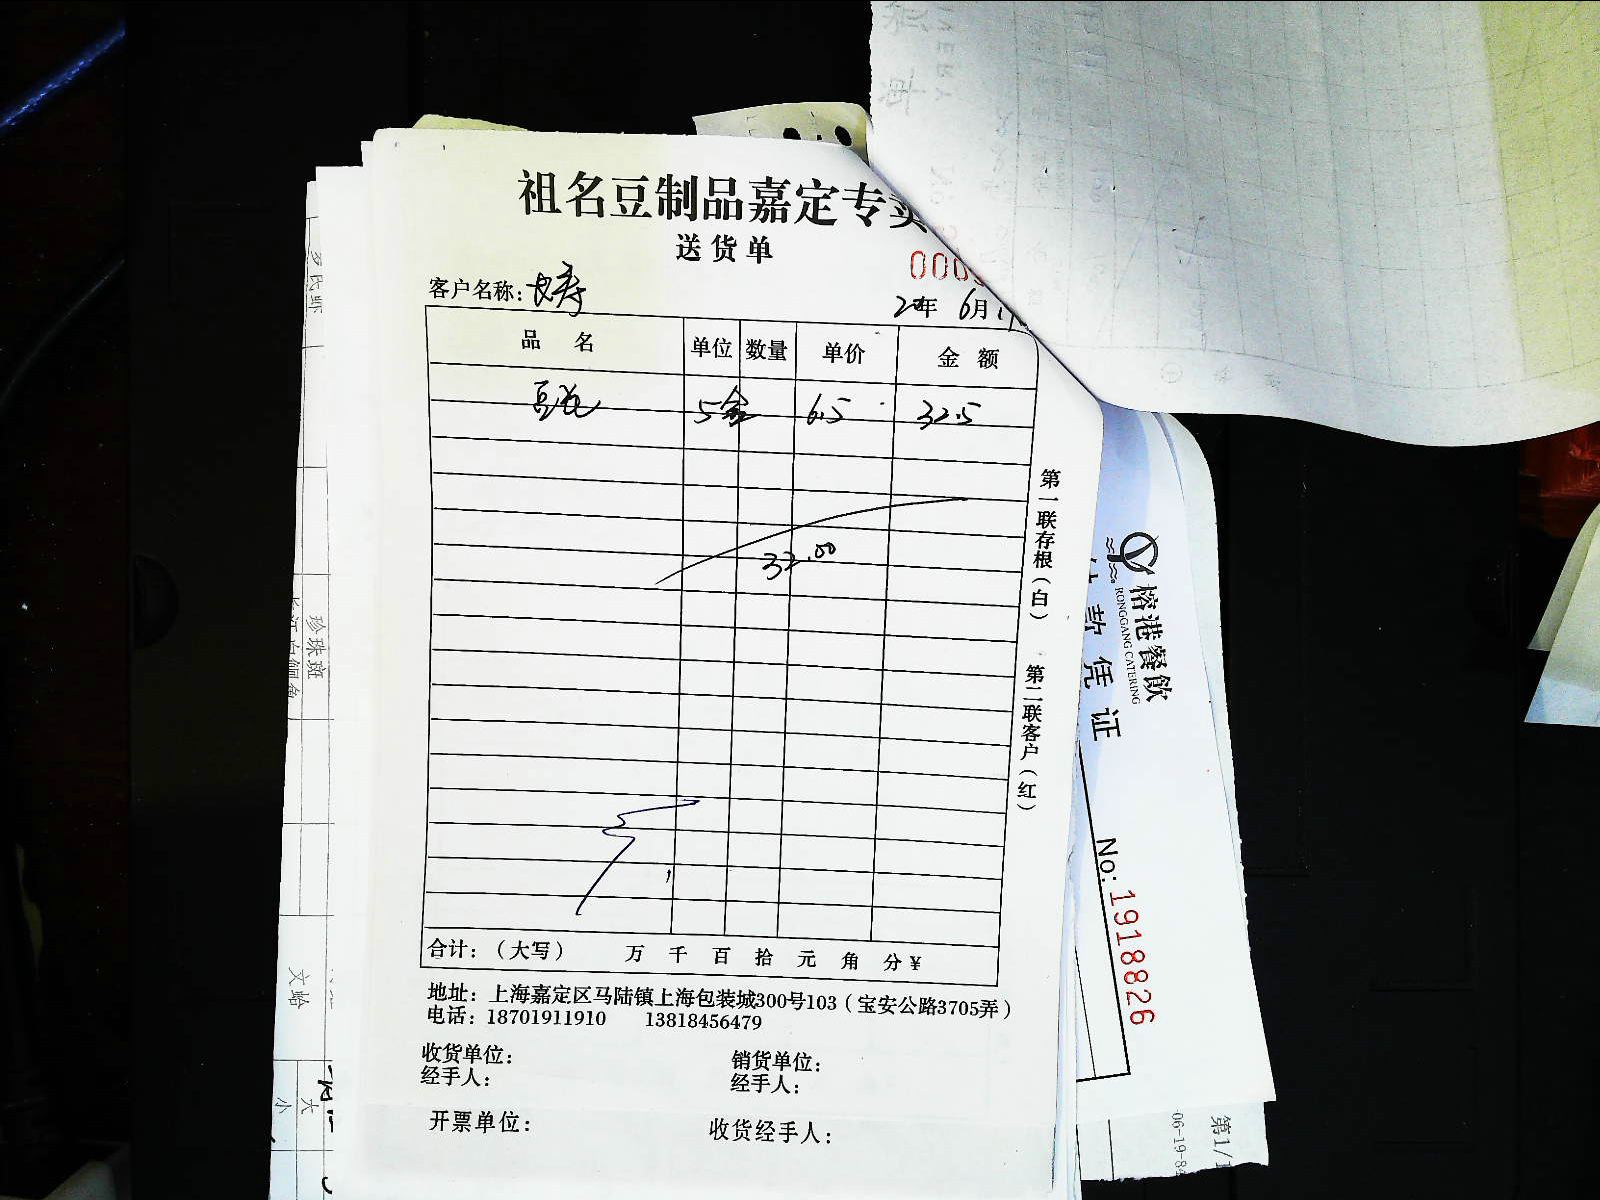 祖名豆制品嘉定专卖
送货单
000
客户名称：
20年 6月
品名 单位 数量 单价 金额
5盒 6.5 32.5
32.00
第一联存根（白） 第二联客户（红）
合计：（大写） 万 千 百 拾 元 角 分 ¥
地址：上海嘉定区马陆镇上海包装城300号103（宝安公路3705弄）
电话：18701911910 13818456479
收货单位： 销货单位：
经手人： 经手人：
开票单位： 收货经手人：
榕港餐飲
RONGGANG CATERING
款凭证
No: 1918826
第1/1
06-19-84
珍珠斑
文蛤
大
小